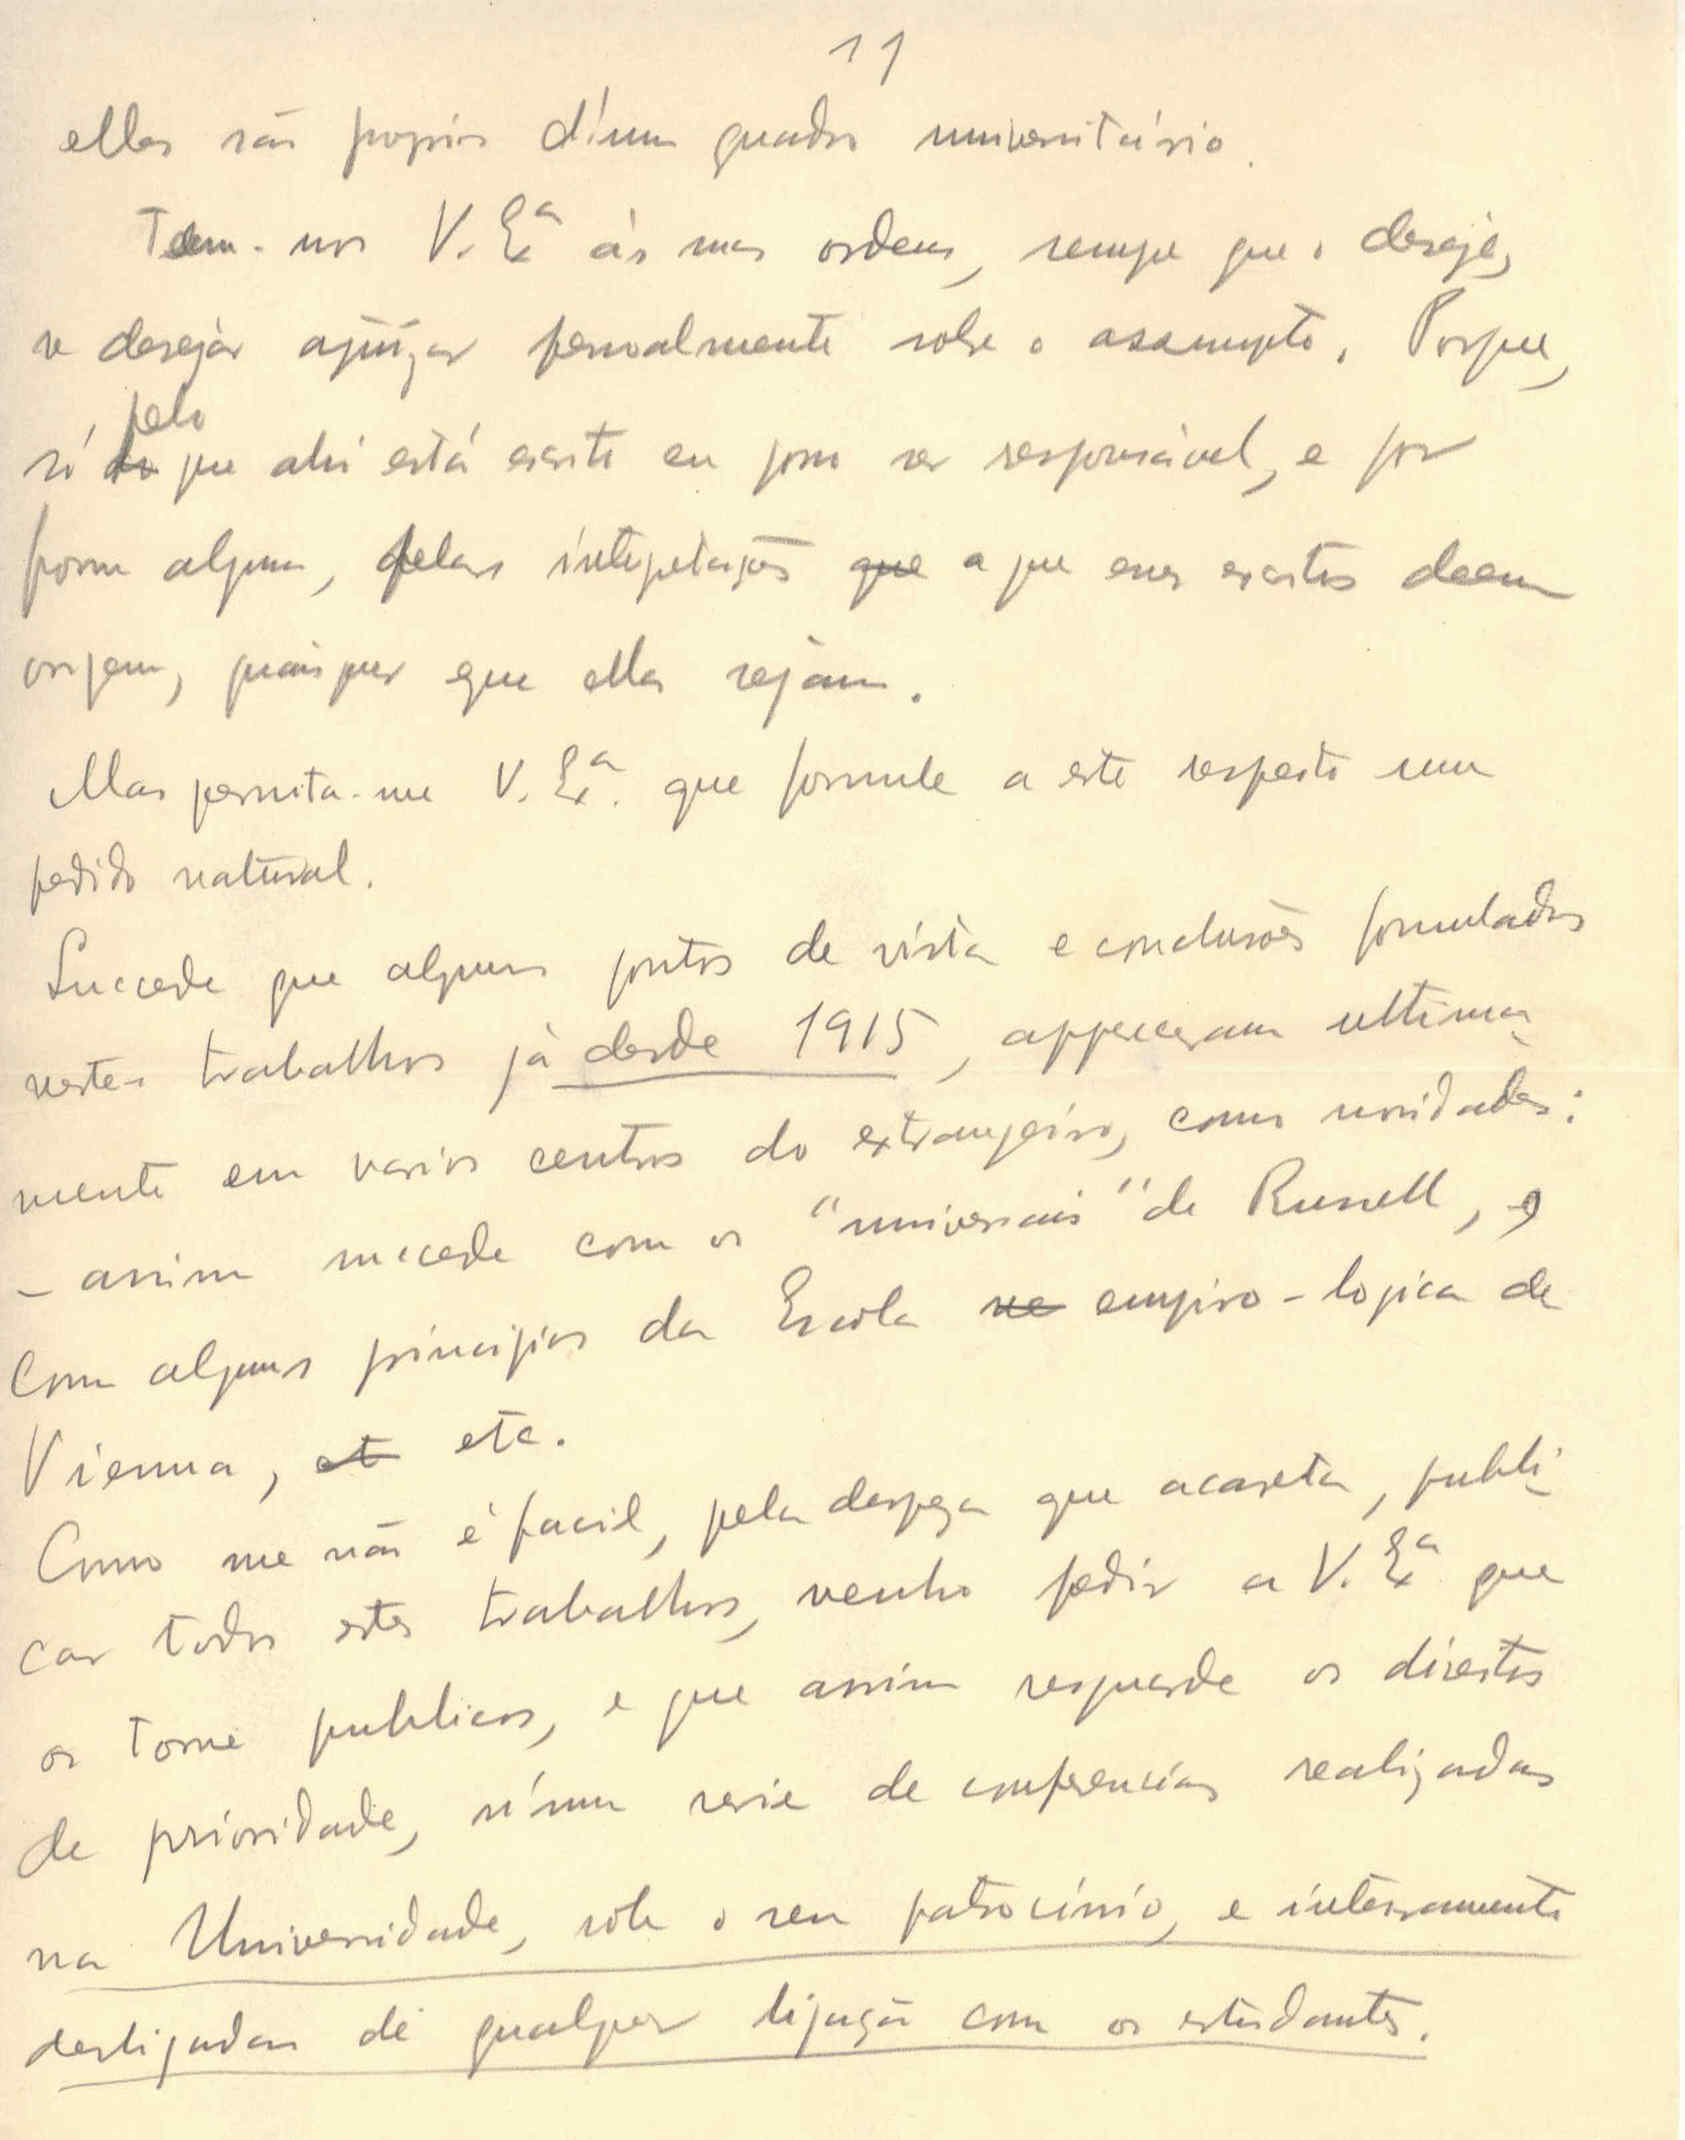 11
elles são proprios d'um quadro universitário.
Tem-nos V. Exª às suas ordens, sempre que o deseje,
se desejar ajuizar pessoalmente sobre o assumpto. Porque,
só do pelo que ahi está escrito eu posso ser responsável, e por
forma alguma, pelas interpretações que a que esses escritos deem
origem, quaisquer que ellas sejam.
Mas permita-me V. Exª. que formule a este respeito um
pedido natural.
Succede que alguns pontos de vista e conclusões formulados
nestes trabalhos já desde 1915, appareceram ultima-
mente em varios centros do extrangeiro, como novidades:
– assim succede com os "universais" de Russell, e
com alguns principios da Escola ne empiro-logica de
Vienna, et etc.
Como me não é facil, pela despeza que acarreta, publi-
car todos estes trabalhos, venho pedir a V. Exª que
os torne publicos, e que assim resguarde os direitos
de prioridade, n'uma serie de conferencias realizadas
na Universidade, sob o seu patrocínio, e inteiramente
desligadas de qualquer ligação com os estudantes.